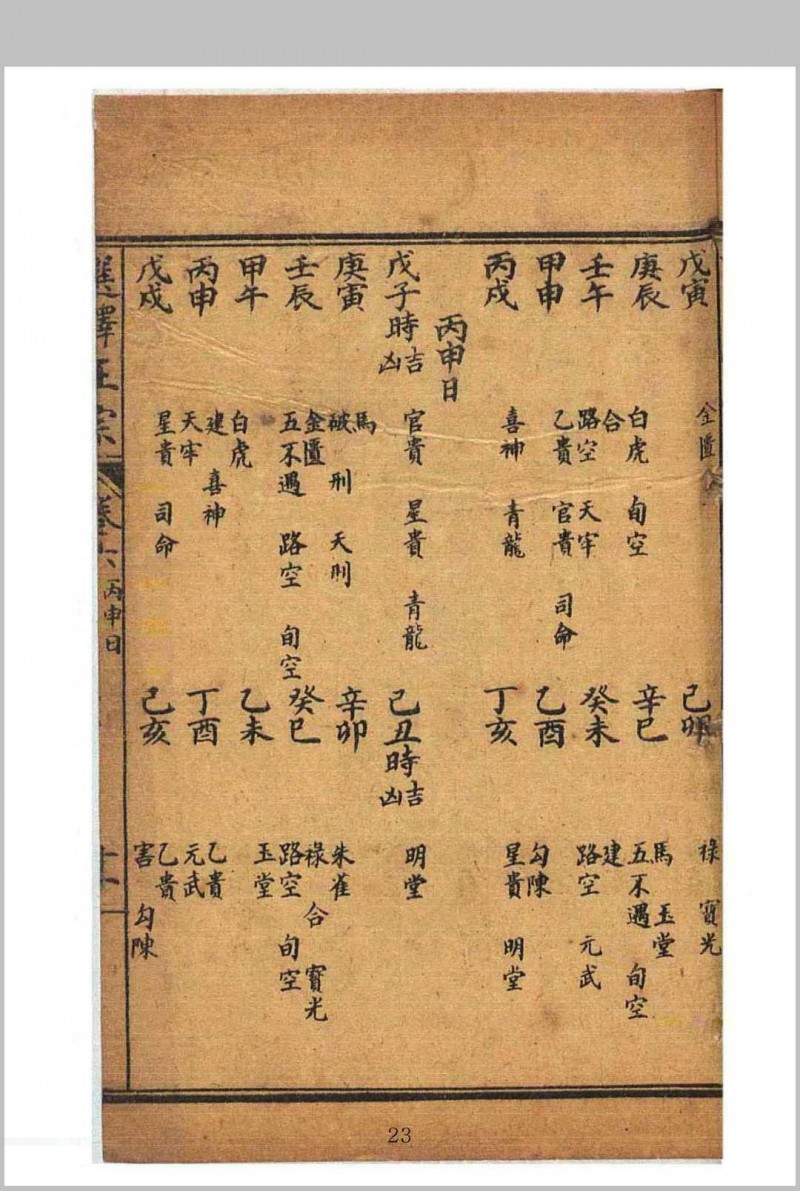 戊寅 金匱 己卯 祿 寶光
庚辰 白虎 旬空 辛巳 馬 玉堂 五不遇 旬空
壬午 合 路空 天牢 癸未 建 路空 元武
甲申 乙貴 官貴 司命 乙酉 勾陳
丙戌 喜神 青龍 丁亥 星貴 明堂
丙申日
戊子時吉凶 官貴 星貴 青龍 己丑時吉凶 明堂
庚寅 馬 破 刑 天刑 辛卯 朱雀
壬辰 金匱 五不遇 路空 旬空 癸巳 祿 合 寶光 路空 旬空
甲午 白虎 乙未 玉堂
丙申 建 喜神 天牢 丁酉 乙貴 元武
戊戌 星貴 司命 己亥 乙貴 害 勾陳
選擇正宗 卷六 丙申日 十一
23